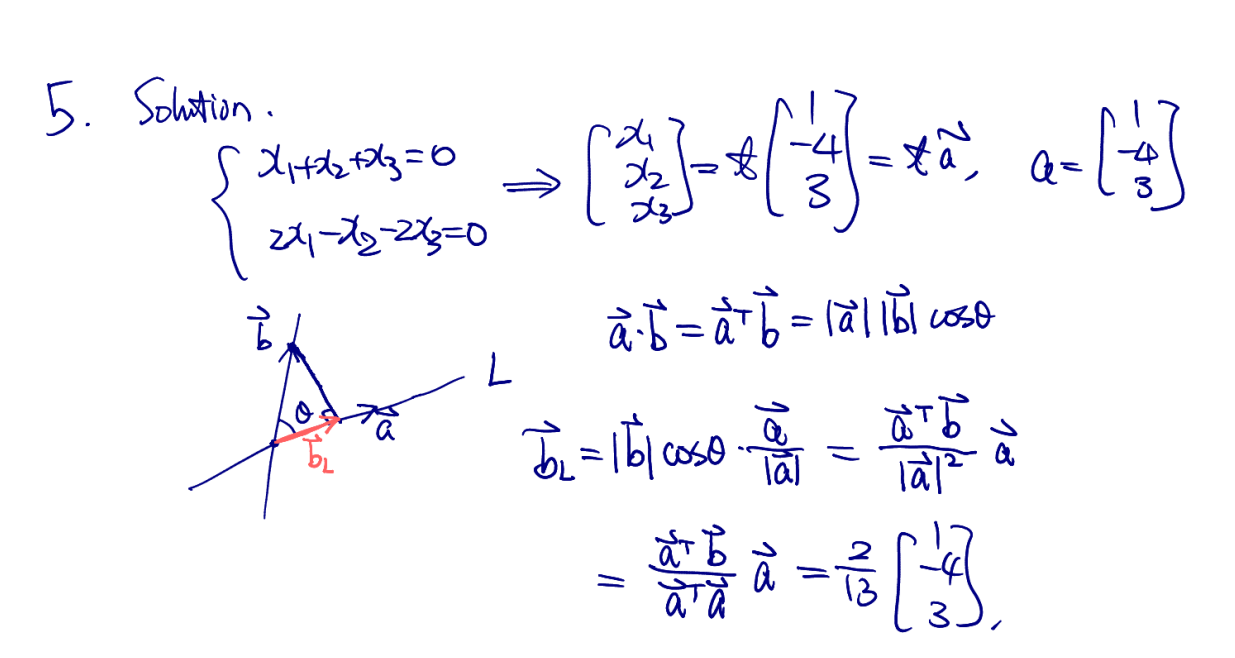 5. Solution.
{ x₁+x₂+x₃=0
2x₁-x₂-2x₃=0
⟹ [x₁ x₂ x₃] = t [1 -4 3] = t a⃗, a = [1 -4 3]
a⃗·b⃗ = a⃗ᵀb⃗ = |a⃗||b⃗| cosθ
b⃗ L θ a⃗ b⃗_L
b⃗_L = |b⃗| cosθ · a⃗/|a⃗| = a⃗ᵀb⃗/|a⃗|² a⃗
= a⃗ᵀb⃗/a⃗ᵀa⃗ a⃗ = 2/13 [1 -4 3],